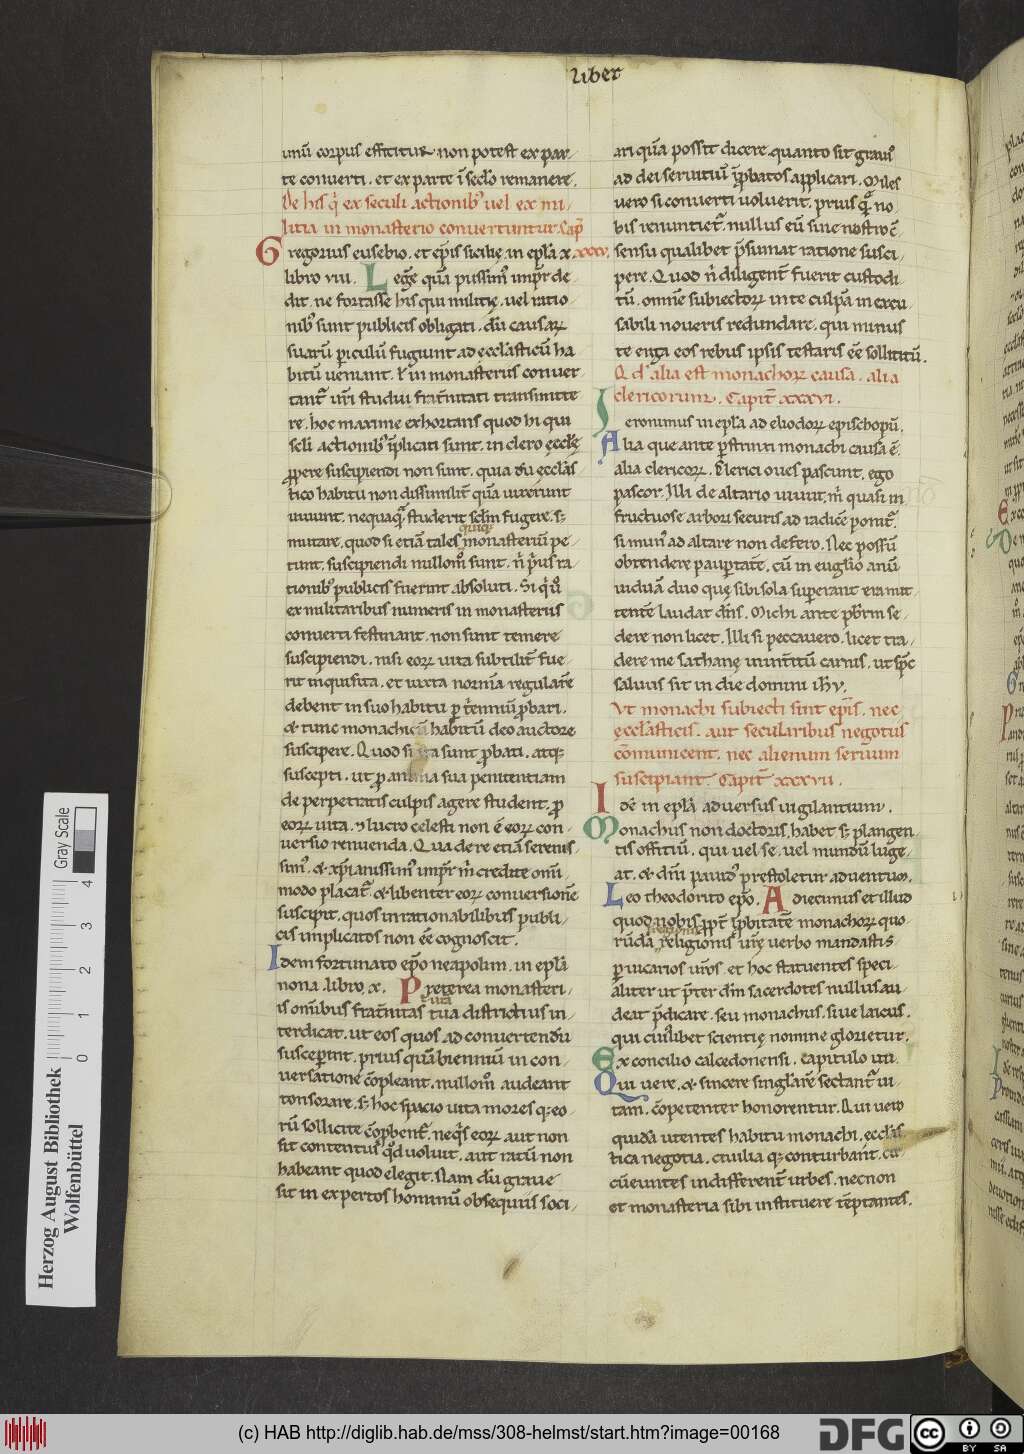 liber
unū corpus efficitur. non potest ex par/
te conuerti. et ex parte ī sclo remanere.
De his q̇ ex seculi actionib; uel ex mi/
litia in monasterio conuertuntur. Cap̄
Gregorius eusebio. et ep̄is sicilię. in epl̄a x. xxxv.
libro viii. Legē quā piissim' imp̄r de/
dit. ne fortasse his qui militię. uel ratio/
nib; sunt publicis obligati. dū causaꝝ
suarū ꝑiculū fugiunt ad eccl̄asticū ha/
bitū ueniant. ł in monasteriis conuer/
tant̄ ur̄i studui frat̄nitati transmitte/
re. hoc maxime exhortans quod hi qui
scl̄i actionib; īplicati sunt. in clero ęccl̄ę
ꝓpere suscipiendi non sunt. quia dū ęccl̄as/
tico habitu non dissimilit̄ quā uixerunt
uiuunt. nequaꝗ̄ student scl̄m fugere. s;
mutare. quod si etiā tales monasteriū pe/
tunt. suscipiendi nullom̊ sunt. n̄ p̄us ra/
tionib; publicis fuerint absoluti. Si q̇ ů
ex militaribus numeris in monasteriis
conuerti festinant. non sunt temere
suscipiendi. nisi eoꝝ uita subtilit̄ fue/
rit inquisita. et iuxta normā regularē
debent in suo habitu ꝑ t̄ennium ꝓbari.
& tunc monachicū habitū deo auctore
suscipere. Quod si ita sunt ꝓbati. atq;
suscepti. ut ꝓ anima sua penitentiam
de perpetratis culpis agere student. ꝓ
eoꝝ uita. & lucro celesti non ē eoꝝ con/
uersio renuenda. Qua de re etiā serenis/
sim'. & xp̄ianissim' imp̄r m̄ credite omī/
modo placat̄. & libenter eoꝝ conuersionē
suscipit. quos in rationabilibus publi/
cis implicatos non ēē cognoscit.
Idem fortunato ep̄o neapolim. in epl̄a
nona. libro. x. Preterea monasteri/
is omībus frat̄nitas tua districtius in/
terdicat. ut eos quos ad conuertendū
susceperint. prius quā biennium in con/
uersatione cōpleant. nullom̊ audeant
tonsorare. s; hoc spacio uita mores q; eo/
rū sollicite cōꝓbent̄. neq̇s eoꝝ aut non
sit contentus qd̊ uoluit. aut ratū non
habeant quod elegit. Nam dū graue
sit in expertos hominū obsequiis soci/
ari quā possit dicere. quanto sit grauius
ad dei seruitiū īꝓbatos applicari. Miles
uero si conuerti uoluerit. prius ꝗ̄ no/
bis renuntiet̄. nullus eū sine nostro ē
sensu qualibet p̄sumat ratione susci/
pere. Quod n̄ diligent̄ fuerit custodi
tū. omnē subiectoꝝ in te culpā in excu/
sabili noueris redundare. qui minus
te erga eos rebus ipsis testaris ēē sollicitū.
Qd̊ alia est monachoꝝ causa. alia
clericorum. Capit̄ xxxvi.
Ieronimus in epl̄a ad eliodorę epischopū.
Alia que ante ꝑstrinxi monachi causa ē.
alia clericoꝝ. Clerici oues pascunt. ego
pascor. Illi de altario uiuunt. m̄ quasi in
fructuose arbori securis ad radicē ponit̄.
si mun' ad altare non defero. Nec possū
obtendere paup̄tatē. cū in euglio anū
uiduā duo quę sibi sola superant era mit/
tentē laudat dn̄s. Michi ante pbr̄m se/
dere non licet. Illi si peccauero. licet tra/
dere me sathanę in int̄itū carnis. ut sp̄c
saluus sit in die domini ihu.
Vt monachi subiecti sint ep̄is. nec
ęccl̄asticis. aut secularibus negotiis
cōmunicent. nec alienum seruum
suscipiant. Capit̄ xxxvii.
Idē in epl̄a aduersus uigilantium.
Monachus non doctoris. habet s; plangen
tis offitiū. qui uel se. uel mundū luge/
at. & dn̄i pauid' prestoletur aduentum.
Leo theodorito ep̄o. Adiecimus et illud
quod nobis ꝓpt̄ īꝓbitatē monachoꝝ quo/
rūdā religionis ur̄ę uerbo mandastis
ꝑ uicarios ur̄os. et hoc statuentes speci/
aliter ut p̄ter dm̄ sacerdotes nullus au/
deat p̄dicare. seu monachus. siue laicus.
qui cuiuslibet scientię nomine glorietur.
Ex concilio calcedonensi. capitulo iiii.
Qui uere. & sincere singl̄arē sectant̄ ui/
tam. cōpetenter honorentur. Qui uero
quidā utentes habitu monachi. ęccl̄as
tica negotia. ciuilia q; conturbant. cir
cūeuntes indifferent̄ urbes. necnon
et monasteria sibi instituere tēptantes.
Gray Scale
4
3
2
1
0
Herzog August Bibliothek
Wolfenbüttel
(c) HAB http://diglib.hab.de/mss/308-helmst/start.htm?image=00168
DFG
cc BY SA